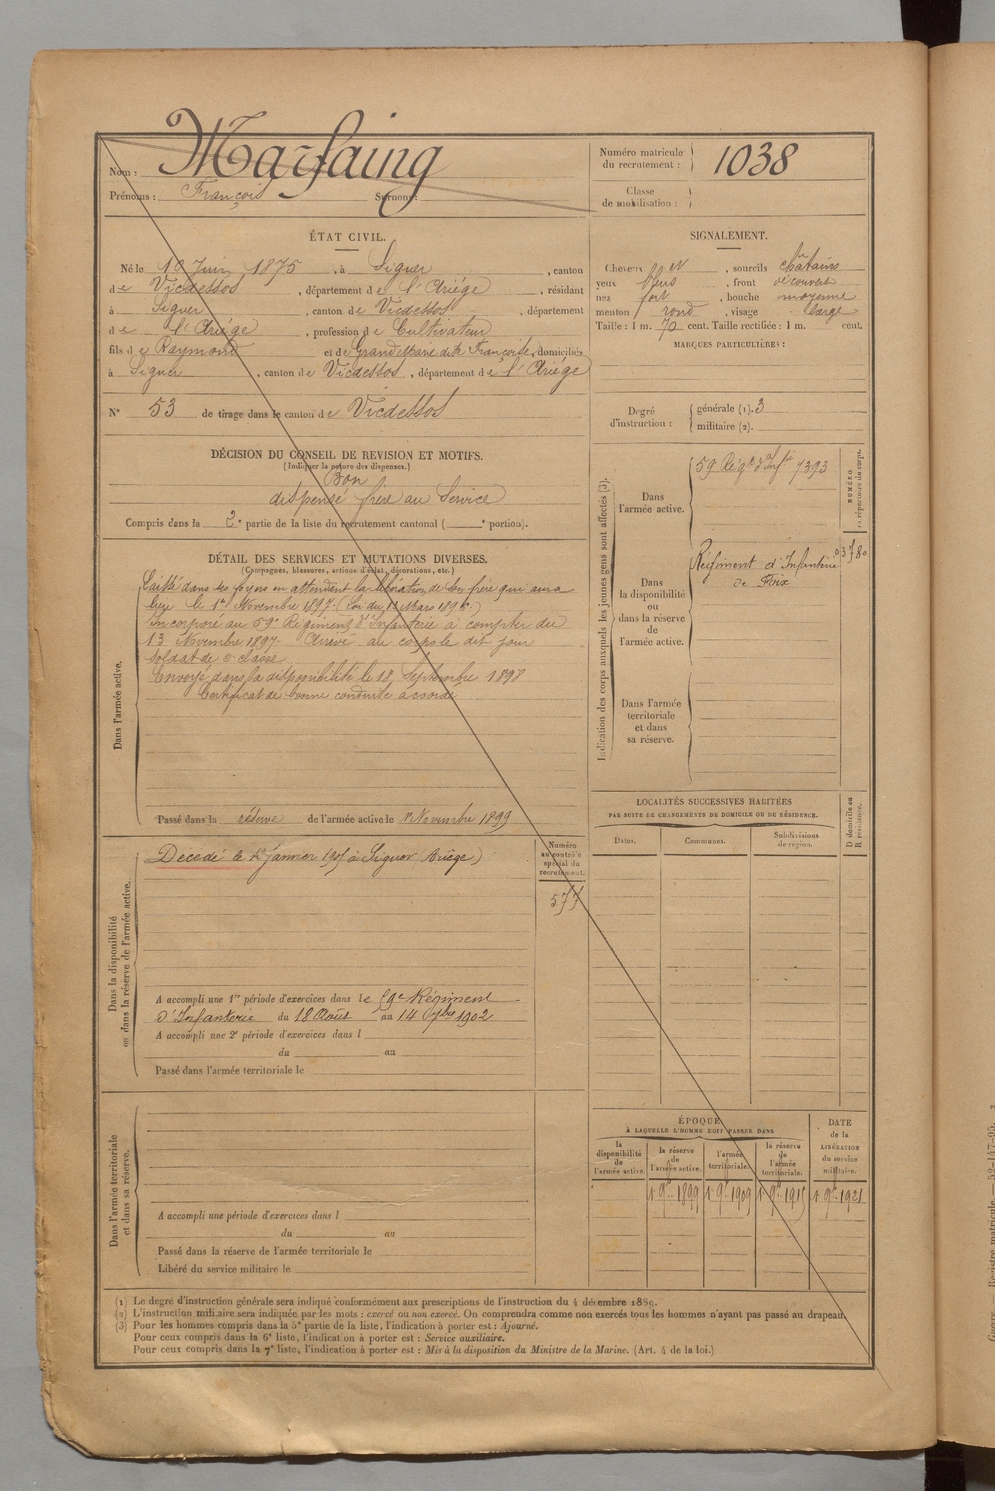 Nom : Marfaing
Prénoms : François Surnoms :
Numéro matricule du recrutement : 1038
Classe de mobilisation :
ÉTAT CIVIL.
Né le 10 Juin 1875, à Siguer, canton
de Vicdessos, département de l'Ariége, résidant
à Siguer, canton de Vicdessos, département
de l'Ariége, profession de Cultivateur
fils de Raymond et de Grand Marie dite Françoise, domiciliés
à Siguer, canton de Vicdessos, département de l'Ariége
N° 53 de tirage dans le canton de Vicdessos
DÉCISION DU CONSEIL DE REVISION ET MOTIFS.
(Indiquer la nature des dispenses.)
Bon
dispensé frère au Service
Compris dans la 2e partie de la liste du recrutement cantonal ( e portion).
SIGNALEMENT.
Cheveux et, sourcils châtains
yeux bleus, front découvert
nez fort, bouche moyenne
menton rond, visage large
Taille : 1 m. 70 cent. Taille rectifiée : 1 m. cent.
MARQUES PARTICULIÈRES :
Degré d'instruction : générale (1). 3
militaire (2).
DÉTAIL DES SERVICES ET MUTATIONS DIVERSES.
(Campagnes, blessures, actions d'éclat, décorations, etc.)
Dans l'armée active.
Laissé dans ses foyers en attendant la libération de son frère qui aura
lieu le 1er Novembre 1897. (Loi du Mars 1896.)
Incorporé au 59e Régiment d'Infanterie à compter du
13 Novembre 1897. Arrivé au corps le dit jour
soldat de 2e classe
Envoyé dans la disponibilité le 18 Septembre 1898
Certificat de bonne conduite accordé
Passé dans la réserve de l'armée active le 1er Novembre 1899
Indication des corps auxquels les jeunes gens sont affectés (3).
NUMÉRO au répertoire du corps.
Dans l'armée active.
59 Régt d'Infie 7393
Dans la disponibilité ou dans la réserve de l'armée active.
Régiment d'Infanterie 03780
de Foix
Dans l'armée territoriale et dans sa réserve.
Dans la disponibilité ou dans la réserve de l'armée active.
Décédé le Janvier à Siguer (Ariège)
Numéro au contrôle spécial du recrutement.
577
A accompli une 1re période d'exercices dans le 59e Régiment
d'Infanterie du 18 Août au 14 7bre 1902
A accompli une 2e période d'exercices dans l
du au
Passé dans l'armée territoriale le
LOCALITÉS SUCCESSIVES HABITÉES
PAR SUITE DE CHANGEMENTS DE DOMICILE OU DE RÉSIDENCE.
Dates. Communes. Subdivisions de région. D domicile ou R résidence.
Dans l'armée territoriale et dans sa réserve.
A accompli une période d'exercices dans l
du au
Passé dans la réserve de l'armée territoriale le
Libéré du service militaire le
ÉPOQUE
À LAQUELLE L'HOMME DOIT PASSER DANS
la disponibilité de l'armée active.
la réserve de l'armée active.
l'armée territoriale.
la réserve de l'armée territoriale.
DATE de la LIBÉRATION du service militaire.
1er 9bre 1899 1er 9bre 1909 1er 9bre 1915 1er 9bre 1921
(1) Le degré d'instruction générale sera indiqué conformément aux prescriptions de l'instruction du 4 décembre 1889.
(2) L'instruction militaire sera indiquée par les mots : exercé ou non exercé. On comprendra comme non exercés tous les hommes n'ayant pas passé au drapeau.
(3) Pour les hommes compris dans la 5e partie de la liste, l'indication à porter est : Ajourné.
Pour ceux compris dans la 6e liste, l'indication à porter est : Service auxiliaire.
Pour ceux compris dans la 7e liste, l'indication à porter est : Mis à la disposition du Ministre de la Marine. (Art. 4 de la loi.)